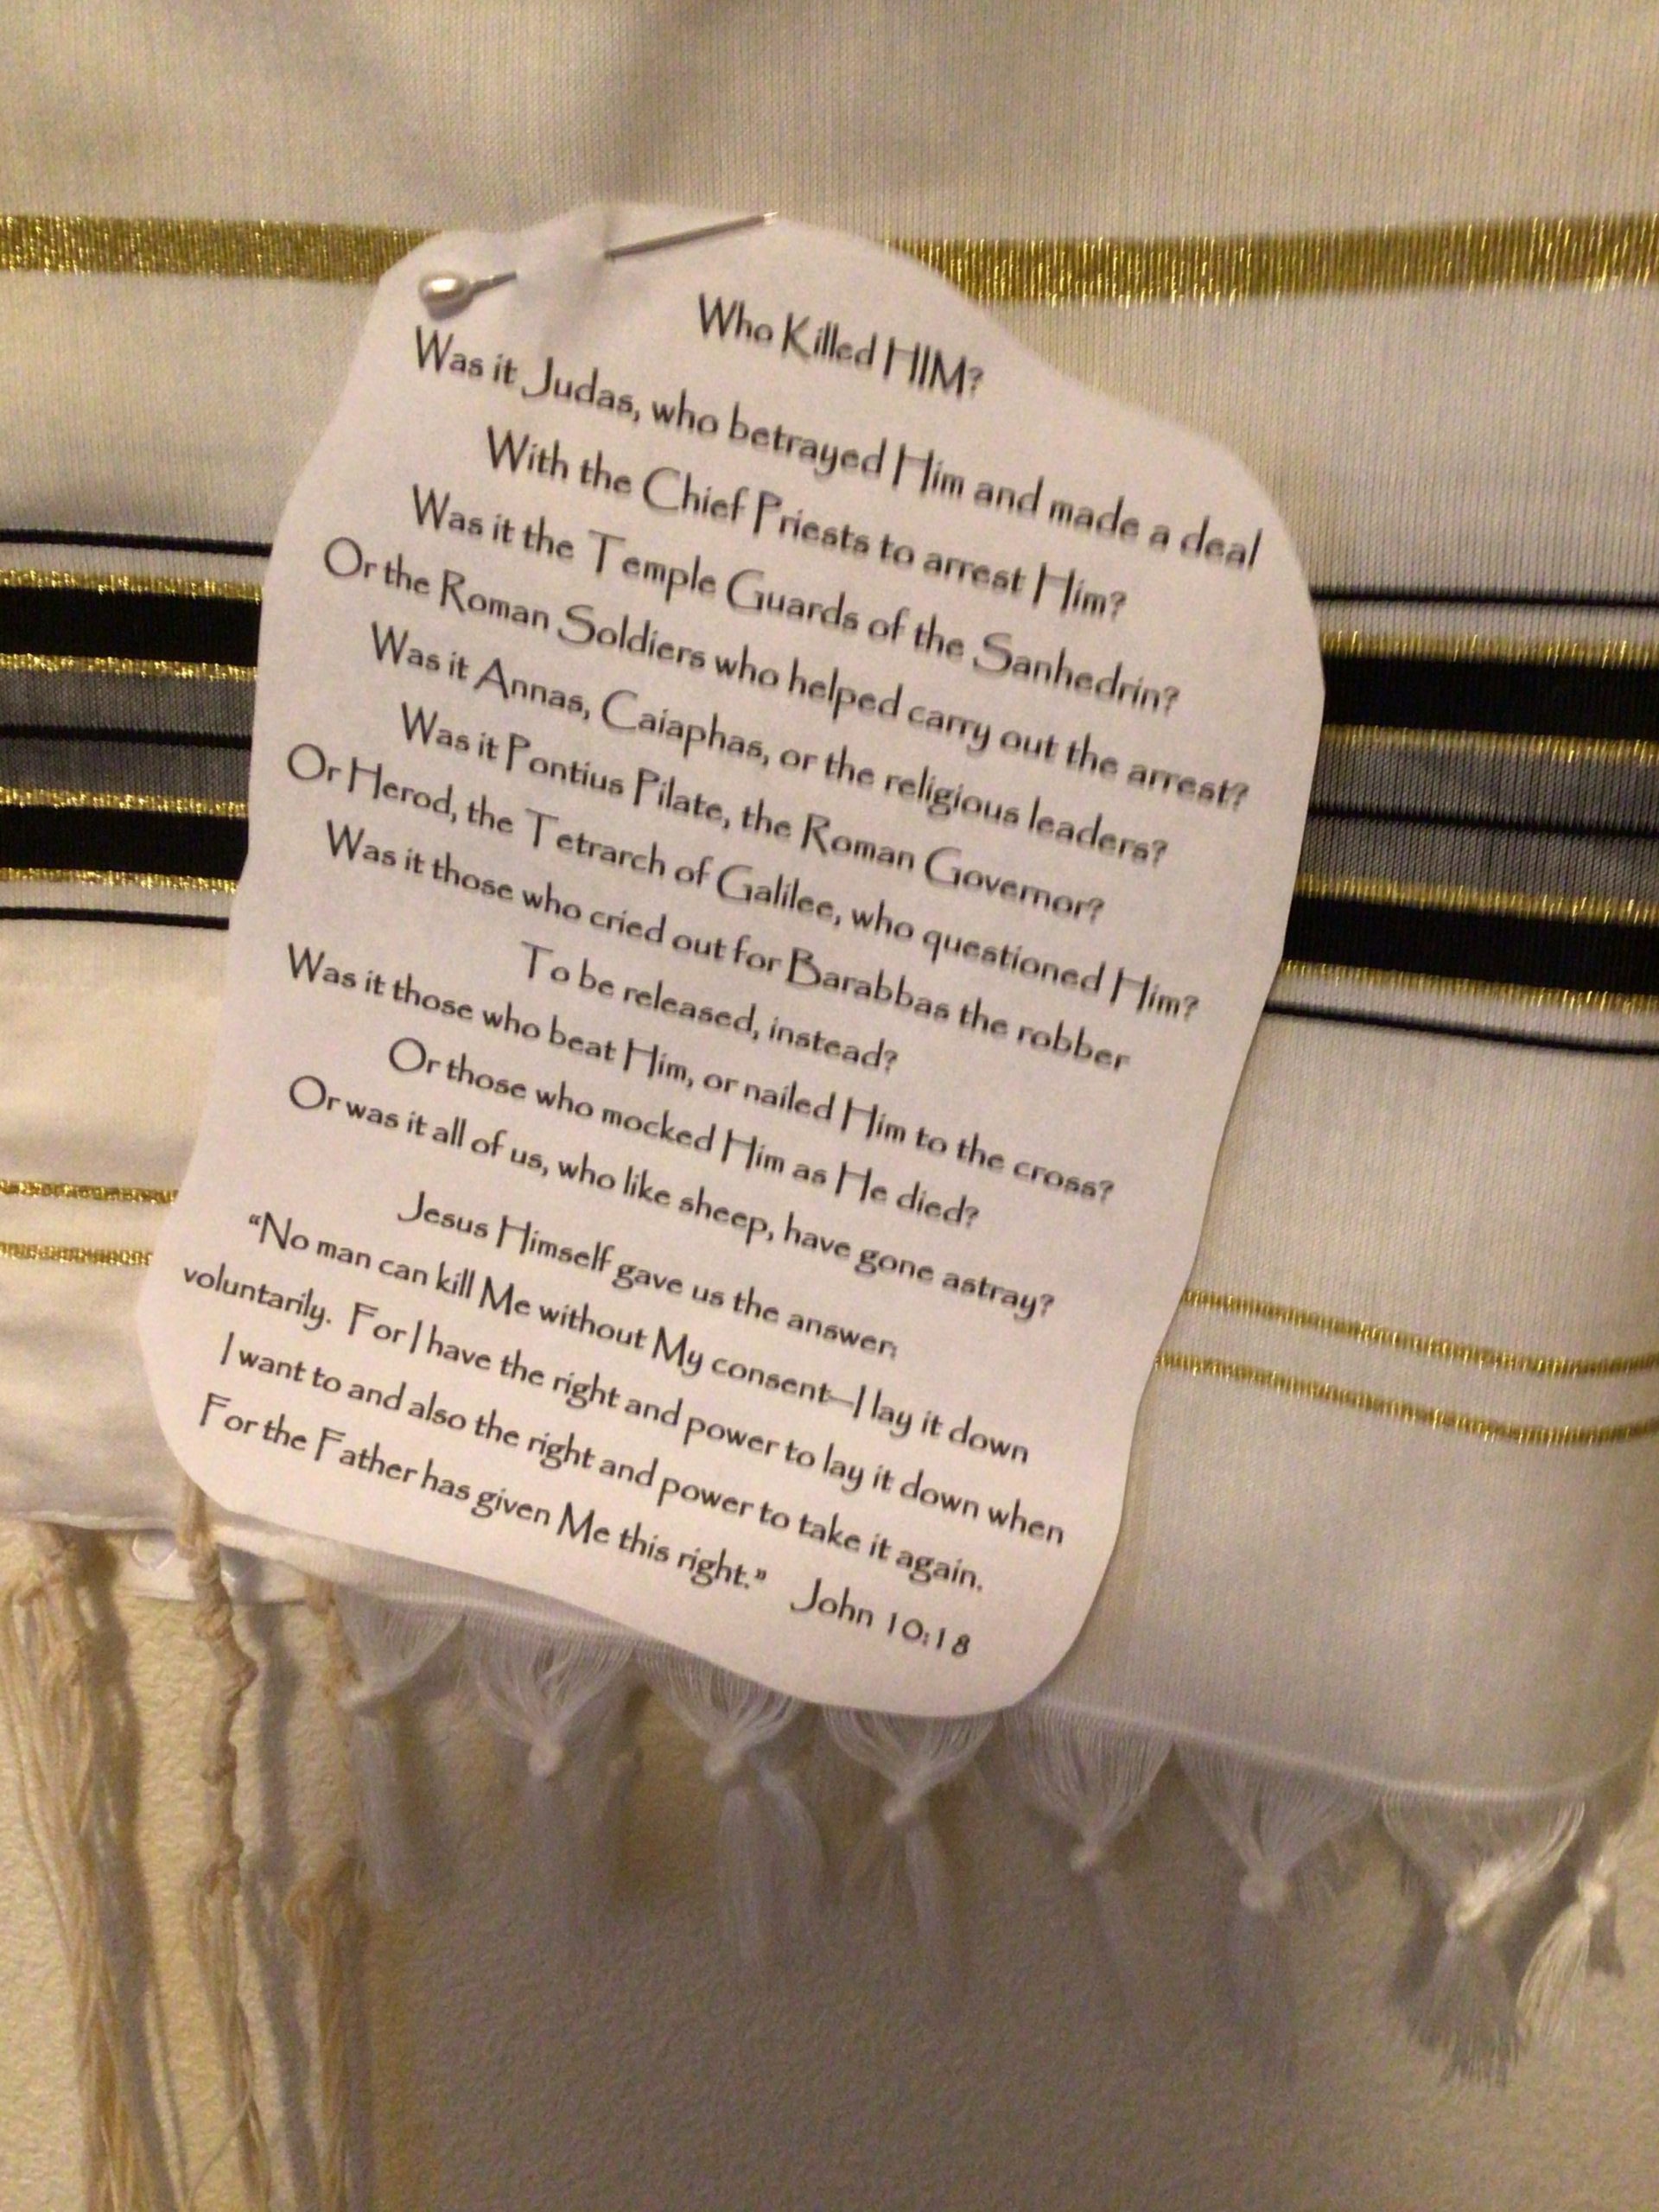 Who Killed HIM?
Was it Judas, who betrayed Him and made a deal
With the Chief Priests to arrest Him?
Was it the Temple Guards of the Sanhedrin?
Or the Roman Soldiers who helped carry out the arrest?
Was it Annas, Caiaphas, or the religious leaders?
Was it Pontius Pilate, the Roman Governor?
Or Herod, the Tetrarch of Galilee, who questioned Him?
Was it those who cried out for Barabbas the robber
To be released, instead?
Was it those who beat Him, or nailed Him to the cross?
Or those who mocked Him as He died?
Or was it all of us, who like sheep, have gone astray?
Jesus Himself gave us the answer:
“No man can kill Me without My consent—I lay it down
voluntarily. For I have the right and power to lay it down when
I want to and also the right and power to take it again.
For the Father has given Me this right.” John 10:18